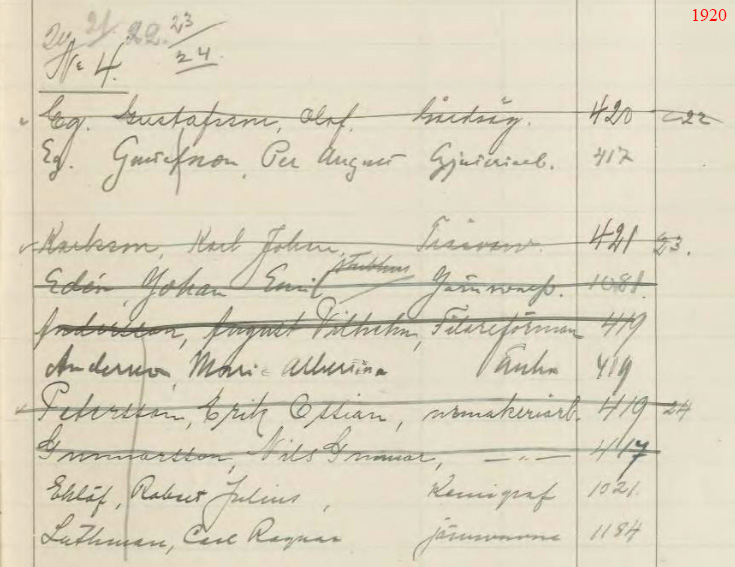 1920
24 21 22. 23
24
No 4.
Eg. Gustafsson, Olof. 420 22
Eg. Gustafsson, Per August Gjuteriarb. 417
Karlsson, Karl Johan, 421 23.
Edén, Johan Emil 1081.
Andersson, August Vilhelm, Filareförman 419
Andersson, Maria Albertina Änka 419
Petersson, Erik Ossian, urmakeriarb. 419 24
Gunnarsson, Nils Gunnar, — „ — 417
Eklöf, Robert Julius, Kemigraf 1021.
Luthman, Carl Ragnar 1184